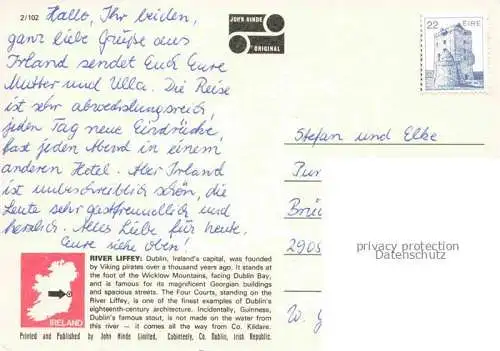 2/102
Hallo, Ihr beiden,
ganz liebe Grüße aus
Irland sendet Euch Eure
Mutter und Ulla. Die Reise
ist sehr abwechslungsreich,
jeden Tag neue Eindrücke,
fast jeden Abend in einem
anderen Hotel. Aber Irland
ist unbeschreiblich schön, die
Leute sehr gastfreundlich und
herzlich. Alles Liebe für heute,
Eure siehe oben!
JOHN HINDE
ORIGINAL
22 ÉIRE
Stefan und Elke
Pur
Brüc
2905
W. G
privacy protection
Datenschutz
IRELAND
RIVER LIFFEY: Dublin, Ireland's capital, was founded
by Viking pirates over a thousand years ago. It stands at
the foot of the Wicklow Mountains, facing Dublin Bay,
and is famous for its magnificent Georgian buildings
and spacious streets. The Four Courts, standing on the
River Liffey, is one of the finest examples of Dublin's
eighteenth-century architecture. Incidentally, Guinness,
Dublin's famous stout, is not made on the water from
this river — it comes all the way from Co. Kildare.
Printed and Published by John Hinde Limited, Cabinteely, Co. Dublin, Irish Republic.